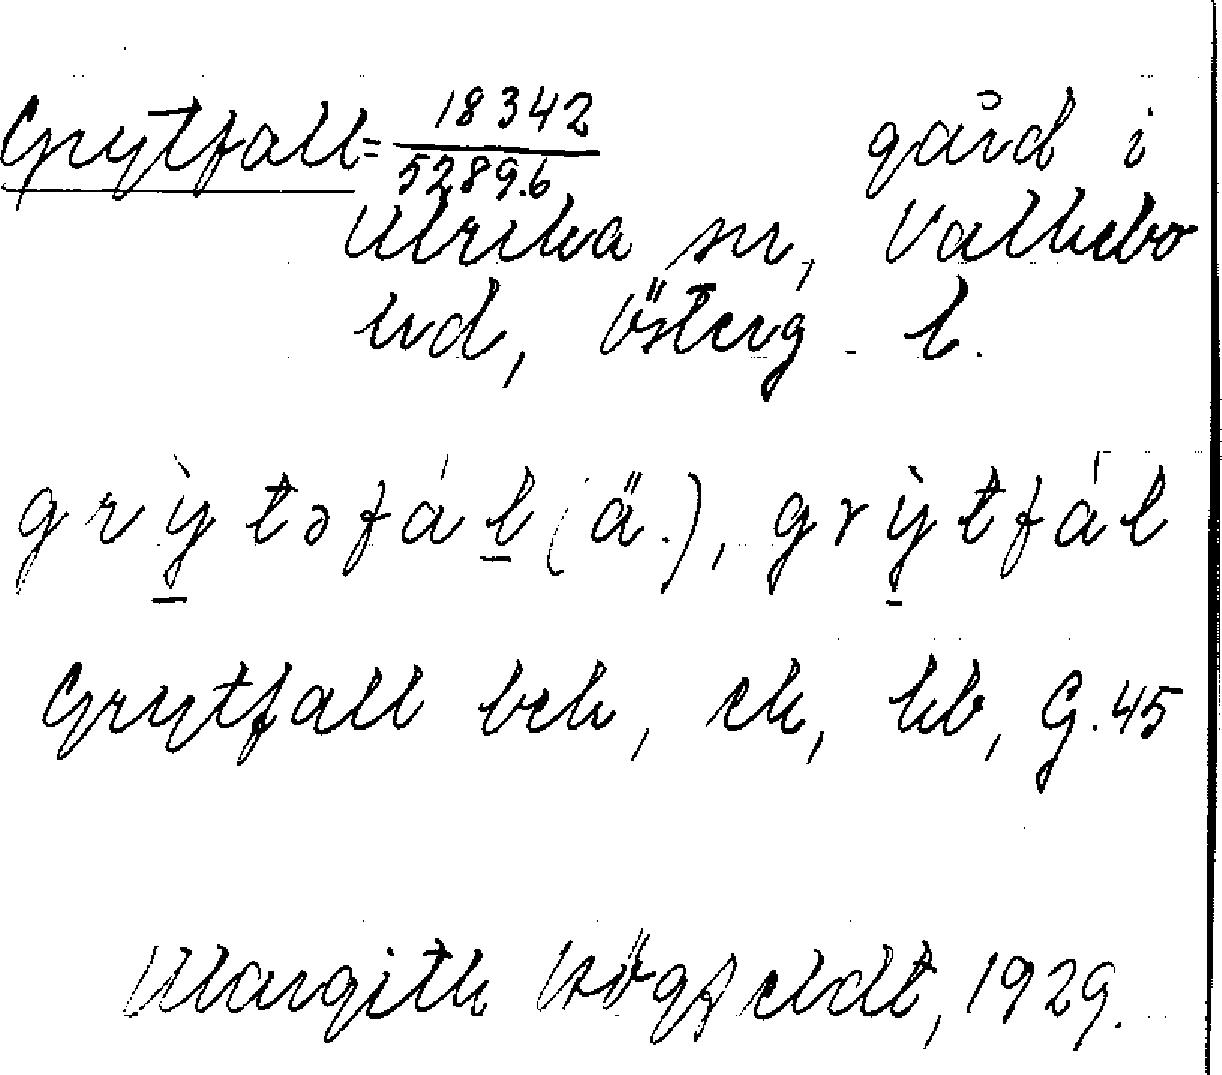 Grytfall = 18342 / 5289.6 gård i
Ulrika sn, Valkebo
hd, Österg. l.
grỳtəfál (ä.), grỳtfál
Grytfall bek, ek, kb, G. 45
Margith Högfeldt, 1929.